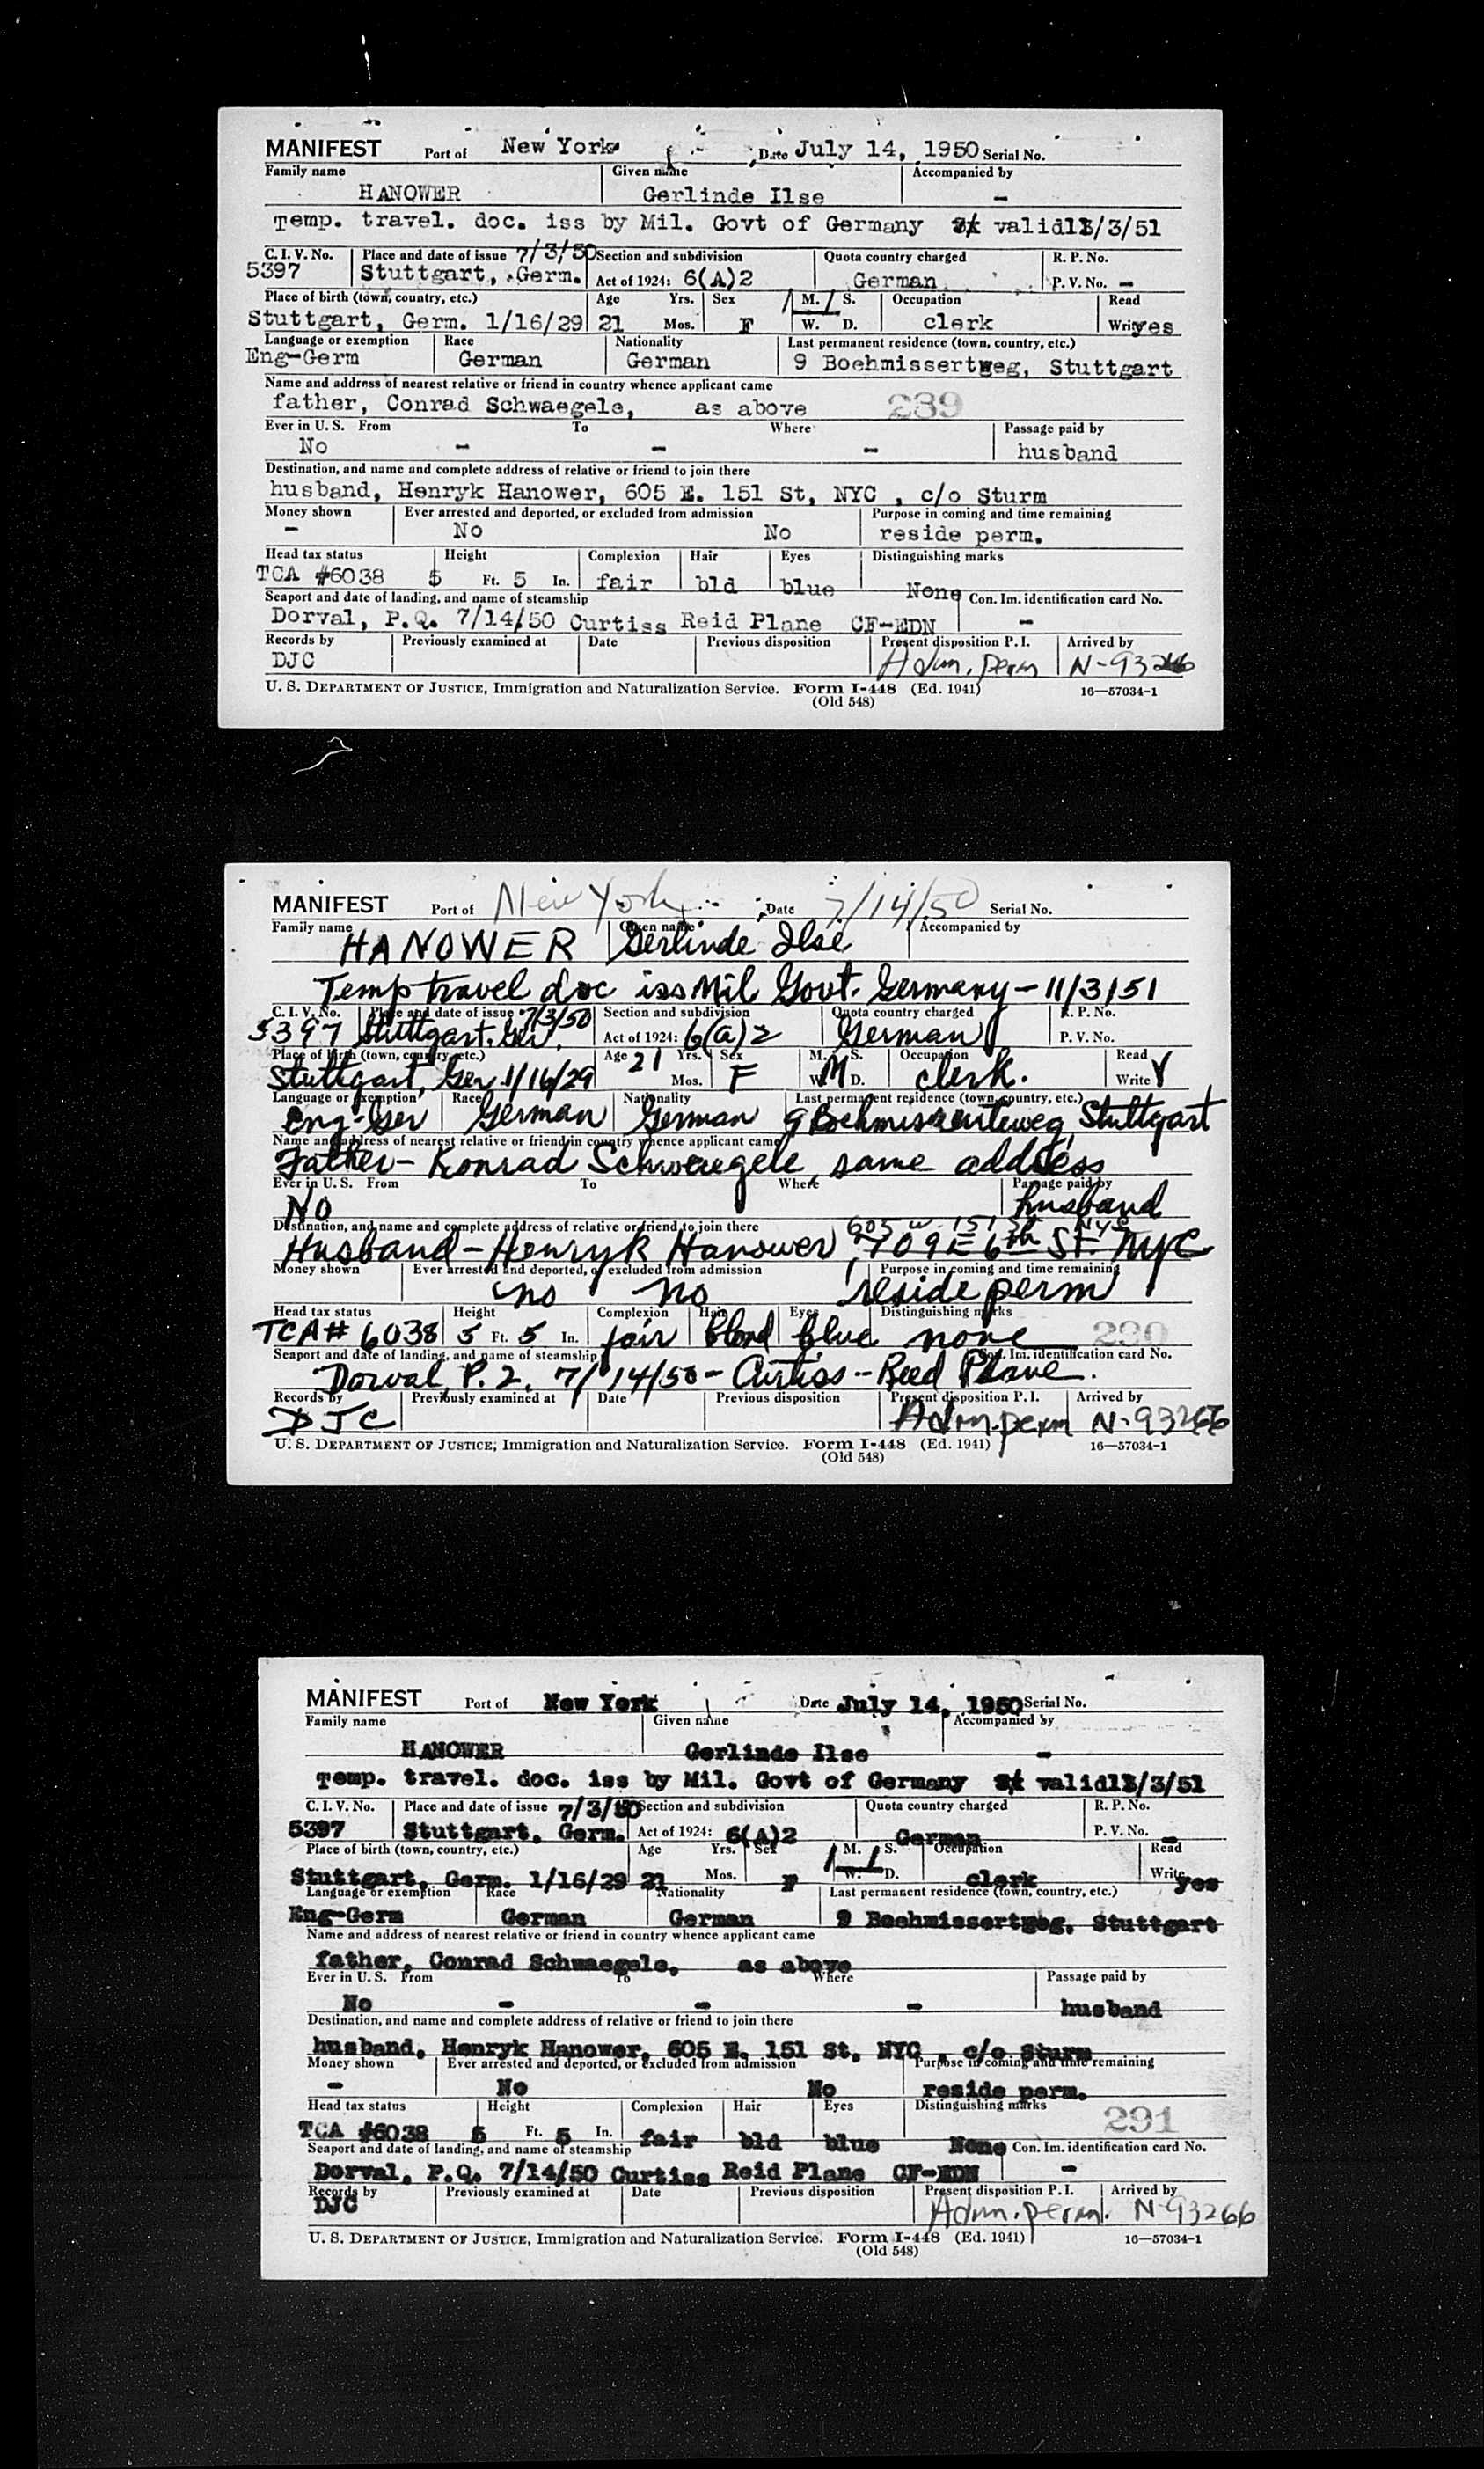 MANIFEST Port of New York Date July 14, 1950 Serial No.
Family name Given name Accompanied by
HANOWER Gerlinde Ilse -
Temp. travel. doc. iss by Mil. Govt of Germany valid 11/3/51
C. I. V. No. Place and date of issue 7/3/50 Section and subdivision Quota country charged R. P. No.
5397 Stuttgart, Germ. Act of 1924: 6(A)2 German P. V. No. -
Place of birth (town, country, etc.) Age Yrs. Sex M. S. Occupation Read
Stuttgart, Germ. 1/16/29 21 Mos. F W. D. clerk Write yes
Language or exemption Race Nationality Last permanent residence (town, country, etc.)
Eng-Germ German German 9 Boehmissertweg, Stuttgart
Name and address of nearest relative or friend in country whence applicant came
father, Conrad Schwaegele, as above 289
Ever in U. S. From To Where Passage paid by
No - - - husband
Destination, and name and complete address of relative or friend to join there
husband, Henryk Hanower, 605 E. 151 St, NYC , c/o Sturm
Money shown Ever arrested and deported, or excluded from admission Purpose in coming and time remaining
- No No reside perm.
Head tax status Height Complexion Hair Eyes Distinguishing marks
TCA #6038 5 Ft. 5 In. fair bld blue None
Seaport and date of landing, and name of steamship Con. Im. identification card No.
Dorval, P.Q. 7/14/50 Curtiss Reid Plane CF-EDN -
Records by Previously examined at Date Previous disposition Present disposition P. I. Arrived by
DJC Adm. perm N-93266
U. S. DEPARTMENT OF JUSTICE, Immigration and Naturalization Service. Form I-448 (Ed. 1941) 16—57034-1
(Old 548)
MANIFEST Port of New York Date 7/14/50 Serial No.
Family name Given name Accompanied by
HANOWER Gerlinde Ilse
Temp travel doc iss Mil Govt. Germany - 11/3/51
C. I. V. No. Place and date of issue 7/3/50 Section and subdivision Quota country charged R. P. No.
5397 Stuttgart. Ger. Act of 1924: 6(a)2 German P. V. No.
Place of birth (town, country, etc.) Age 21 Yrs. Sex M. S. Occupation Read
Stuttgart, Ger 1/16/29 Mos. F W. M D. clerk. Write Y
Language or exemption Race Nationality Last permanent residence (town, country, etc.)
Eng-Ger German German 9 Stuttgart
Name and address of nearest relative or friend in country whence applicant came
Father - Konrad Schwaegele, same address
Ever in U. S. From To Where Passage paid by
No husband
Destination, and name and complete address of relative or friend to join there 605 W 151 St NYC
Husband - Henryk Hanower, 709 E 6th St. NYC
Money shown Ever arrested and deported, or excluded from admission Purpose in coming and time remaining
no no reside perm
Head tax status Height Complexion Hair Eyes Distinguishing marks
TCA# 6038 5 Ft. 5 In. fair blond blue none 290
Seaport and date of landing, and name of steamship Con. Im. identification card No.
Dorval P.Q. 7/14/50 - Curtiss - Reed Plane.
Records by Previously examined at Date Previous disposition Present disposition P. I. Arrived by
DJC Adm. perm N-93266
U. S. DEPARTMENT OF JUSTICE, Immigration and Naturalization Service. Form I-448 (Ed. 1941) 16—57034-1
(Old 548)
MANIFEST Port of New York Date July 14, 1950 Serial No.
Family name Given name Accompanied by
HANOWER Gerlinde Ilse -
Temp. travel. doc. iss by Mil. Govt of Germany valid 11/3/51
C. I. V. No. Place and date of issue 7/3/50 Section and subdivision Quota country charged R. P. No.
5397 Stuttgart, Germ. Act of 1924: 6(A)2 German P. V. No. -
Place of birth (town, country, etc.) Age Yrs. Sex M. S. Occupation Read
Stuttgart, Germ. 1/16/29 21 Mos. F W. D. clerk Write yes
Language or exemption Race Nationality Last permanent residence (town, country, etc.)
Eng-Germ German German 9 Boehmissertweg, Stuttgart
Name and address of nearest relative or friend in country whence applicant came
father, Conrad Schwaegele, as above
Ever in U. S. From To Where Passage paid by
No - - - husband
Destination, and name and complete address of relative or friend to join there
husband, Henryk Hanower, 605 E. 151 St, NYC , c/o Sturm
Money shown Ever arrested and deported, or excluded from admission Purpose in coming and time remaining
- No No reside perm.
Head tax status Height Complexion Hair Eyes Distinguishing marks 291
TCA #6038 5 Ft. 5 In. fair bld blue None
Seaport and date of landing, and name of steamship Con. Im. identification card No.
Dorval, P.Q. 7/14/50 Curtiss Reid Plane CF-EDN -
Records by Previously examined at Date Previous disposition Present disposition P. I. Arrived by
DJC Adm. perm. N-93266
U. S. DEPARTMENT OF JUSTICE, Immigration and Naturalization Service. Form I-448 (Ed. 1941) 16—57034-1
(Old 548)